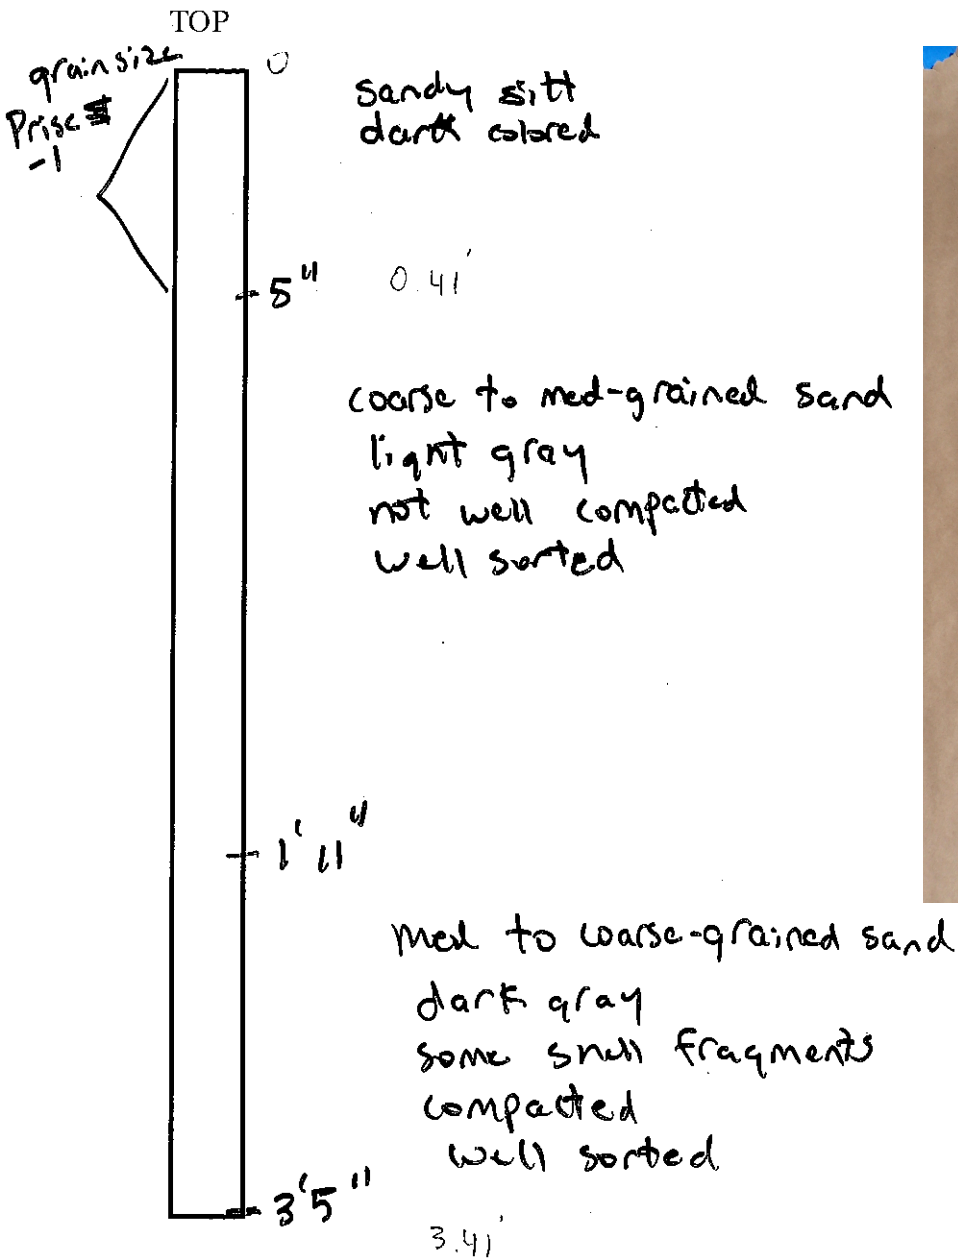 TOP
grain size
0
Prise
-1
sandy silt
dark colored
5"
0.41'
coarse to med-grained sand
light gray
not well compacted
well sorted
1' 11"
med to coarse-grained sand
dark gray
some shell fragments
compacted
well sorted
3'5"
3.41'